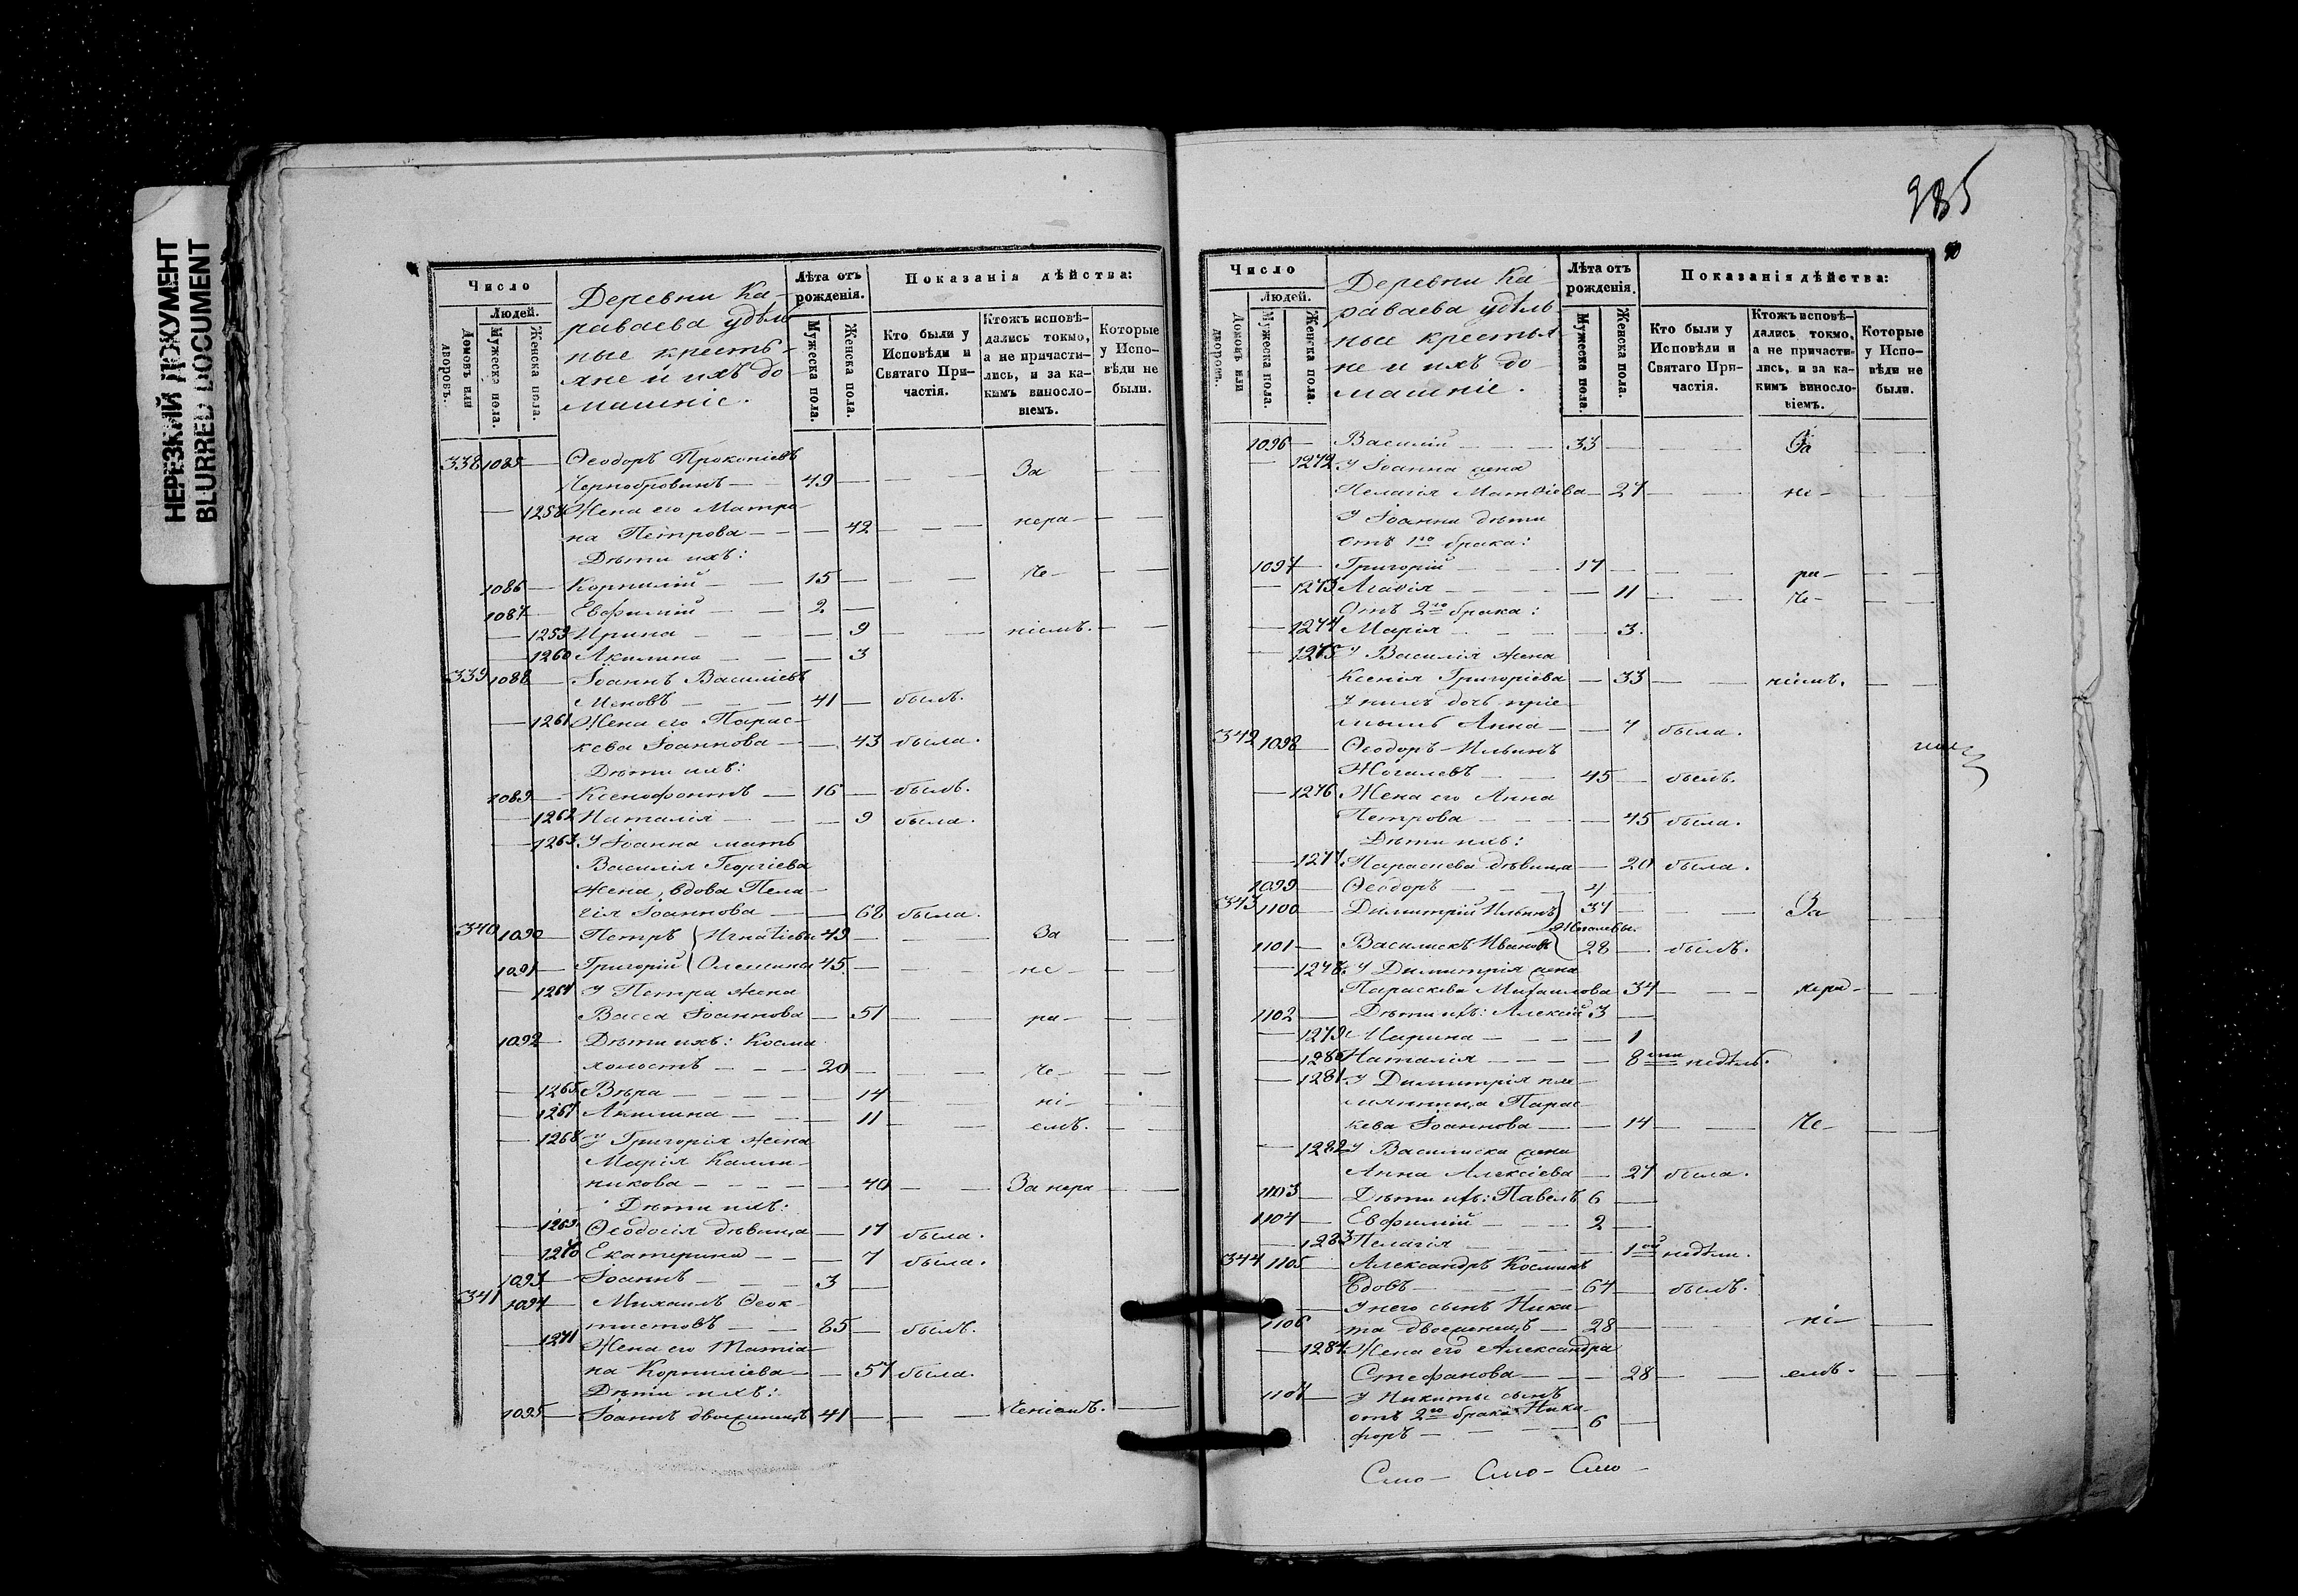 НЕРЕЗКИЙ ДОКУМЕНТ
BLURRED DOCUMENT
Число
Людей.
Домовъ или дворовъ.
Мужеска пола.
Женска пола.
Деревни Ка-
раваева удѣль
ные кресть-
яне и ихъ до-
машніе.
Лѣта отъ рожденія.
Мужеска пола.
Женска пола.
Показанія дѣйства:
Кто были у Исповѣди и Святаго При-частія.
Ктожъ исповѣ-дались токмо, а не причасти-лись, и за ка-кимъ виносло-віемъ.
Которые у Испо-вѣди не были.
338 1085 — Ѳеодоръ Прокопіевъ
Чернобровинъ — 49 — — — За — —
— 1258 Жена его Матре-
на Петрова — — — 42 — — — нера- — —
Дѣти ихъ:
1086 — Корнилій — — 15 — — — че- — —
1087 — Евфимій — — 2 —
— 1259 Ирина — — — 9 — — ніемъ. — —
— 1260 Акилина — — — 3
339 1088 — Іоаннъ Василіевъ
— — — 41 — былъ.
— 1261 Жена его Парас-
кева Іоаннова — — 43 была.
Дѣти ихъ:
1089 — Ксенофонтъ — 16 — былъ.
— 1262 Наталія — — — 9 была.
— 1263 У Іоанна мать
Василія Георгіева
жена, вдова Пела-
гія Іоаннова — — 68 была.
340 1090 — Петръ Игнатіевы 49 — — — За — —
1091 — Григорій 45 — — — не — — —
— 1264 У Петра жена
Васса Іоаннова — 51 — — ра- — —
1092 — Дѣти ихъ: Косма
холостъ — — — 20 — — — че — — —
— 1265 Вѣра — — — — — 14 — — ні- — —
— 1267 Акилина — — — 11 — — емъ. — —
— 1268 У Григорія жена
Марія Калли-
никова — — — — — 40 — — За нера — —
Дѣти ихъ:
— 1269 Ѳеодосія дѣвица — 17 была.
— 1270 Екатерина — — — 7 была.
1093 — Іоаннъ — — — 3 —
341 1094 — Михаилъ Ѳеок-
тистовъ — — 85 — былъ.
— 1271 Жена его Татіа-
на Корниліева — — 57 была.
Дѣти ихъ:
1095 — Іоаннъ двоеженецъ 41 — — — ченіемъ. —
985
Число
Людей.
Домовъ или дворовъ.
Мужеска пола.
Женска пола.
Деревни Ка-
раваева удѣль
ные крестья
не и ихъ до-
машніе.
Лѣта отъ рожденія.
Мужеска пола.
Женска пола.
Показанія дѣйства:
Кто были у Исповѣди и Святаго При-частія.
Ктожъ исповѣ-дались токмо, а не причасти-лись, и за ка-кимъ виносло-віемъ.
Которые у Испо-вѣди не были.
1096 — Василій — — — 33 — — — За — —
— 1272 У Іоанна жена
Пелагія Матвіева — 27 — — не- — —
У Іоанна дѣти
отъ 1го брака:
1097 — Григорій — — — 17 — — — ра- — —
— 1273 Агафія — — — — — 11 — — че- — —
Отъ 2го брака:
— 1274 Марія — — — — 3.
— 1275 У Василія жена
Ксенія Григоріева — 33 — — ніемъ. — —
У нихъ дочь пріе-
мышъ Анна — — 7 была.
342 1098 — Ѳеодоръ Ильинъ
Жогалевъ — — 45 — былъ.
— 1276 Жена его Анна
Петрова — — — — 45 была.
Дѣти ихъ:
— 1277 Параскева дѣвица — 20 была.
1099 — Ѳеодоръ — — — 4 —
343 1100 — Димитрій Ильинъ 34 — — — За — —
Жогалевы.
1101 — Василискъ Ивановъ 28 — былъ.
— 1278 У Димитрія жена
Параскева Михаилова 34 — — — нера- — —
1102 — Дѣти ихъ: Алексій 3 —
— 1279 Марина — — — — 1
— 1280 Наталія — — — — 8ми недѣль.
— 1281 У Димитрія пле-
мянница Парас-
кева Іоаннова — — 14 — — че- — —
— 1282 У Василиска жена
Анна Алексіева — 27 была.
1103 — Дѣти ихъ: Павелъ 6 —
1104 — Евфимій — — — 2 —
— 1283 Пелагія — — — — 1ой недѣли.
344 1105 — Александръ Косминъ
вдовъ — — — 64 — былъ.
— У него сынъ Ники-
1106 та двоеженецъ — 28 — — — ні- —
— 1284 Жена его Александра
Стефанова — — — 28 — — емъ. — —
1107 — У Никиты сынъ
отъ 2го брака Ники-
форъ — — — — 6 —